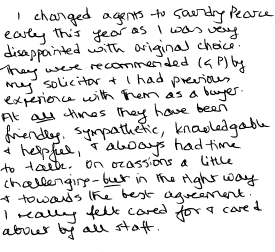 I changed agents to Gawdry Pearce
early this year as I was very
disappointed with original choice.
They were recommended (GP) by
my solicitor & I had previous
experience with them as a buyer.
At all times they have been
friendly, sympathetic, knowledgable
& helpful, & always had time
to talk. On ocassions a little
challenging - but in the right way
& towards the best agreement.
I really felt cared for & cared
about by all staff.